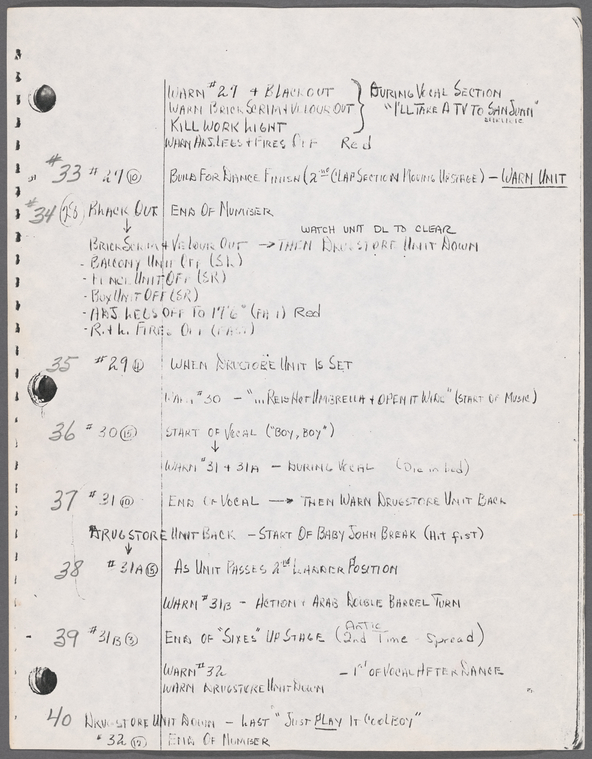 WARM #29 + BLACKOUT
WARM BRICK SCRIM + VELOUR OUT
KILL WORK LIGHT
DURING VOCAL SECTION
"I'LL TAKE A TV TO SAN JUAN"
WARM ADJ. LEGS + FIRES OFF Red
#33 #29 (10) BUILD FOR DANCE FINISH (2nd CLAP SECTION MOVING UPSTAGE) - WARN UNIT
#34 BLACK OUT END OF NUMBER
WATCH UNIT DL TO CLEAR
BRICK SCRIM + VELOUR OUT → THEN DRUGSTORE UNIT DOWN
- BALCONY UNIT OFF (SL)
- FENCE UNIT OFF (SR)
- BOX UNIT OFF (SR)
- ADJ. LEGS OFF TO 17'6" Red
- R.+L. FIRES OFF
35 #29 (4) WHEN DRUGSTORE UNIT IS SET
WARN #30 - "... UMBRELLA + OPEN IT WIDE" (START OF MUSIC)
36 #30 (15) START OF VOCAL ("BOY, BOY")
WARN #31 + 31A - DURING VOCAL (Die in bed)
37 #31 (10) END OF VOCAL → THEN WARN DRUGSTORE UNIT BACK
DRUGSTORE UNIT BACK - START OF BABY JOHN BREAK (Hit fist)
38 #31A (5) AS UNIT PASSES 2nd LADDER POSITION
WARM #31B - ACTION + ARAB DOUBLE BARREL TURN
39 #31B (3) END OF "SIXES" UPSTAGE (2nd Time - Spread)
Antic
WARM #32 - 1st OF VOCAL AFTER DANCE
WARM DRUGSTORE UNIT DOWN
40 DRUGSTORE UNIT DOWN - LAST "JUST PLAY IT COOL BOY"
#32 END OF NUMBER